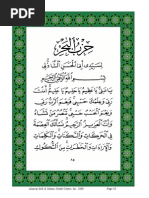 حِزْبُ الْبَحْرِ
لِسَيِّدِي أَبِي الْحَسَنِ الشَّاذُلِي
بِسْمِ اللهِ الرَّحْمٰنِ الرَّحِيمِ
يَا عَلِيُّ يَا عَظِيمُ يَا حَلِيمُ يَا عَلِيمُ أَنْتَ
رَبِّي وَعِلْمُكَ حَسْبِي فَنِعْمَ الرَّبُّ رَبِّي
وَنِعْمَ الْحَسْبُ حَسْبِي تَنْصُرُ مَنْ تَشَاءُ
وَأَنْتَ الْعَزِيزُ الرَّحِيمُ نَسْأَلُكَ الْعِصْمَةَ
فِي الْحَرَكَاتِ وَالسَّكَنَاتِ وَالْكَلِمَاتِ
وَالْإِرَادَاتِ وَالْخَطَرَاتِ مِنَ الشُّكُوكِ
٨٥